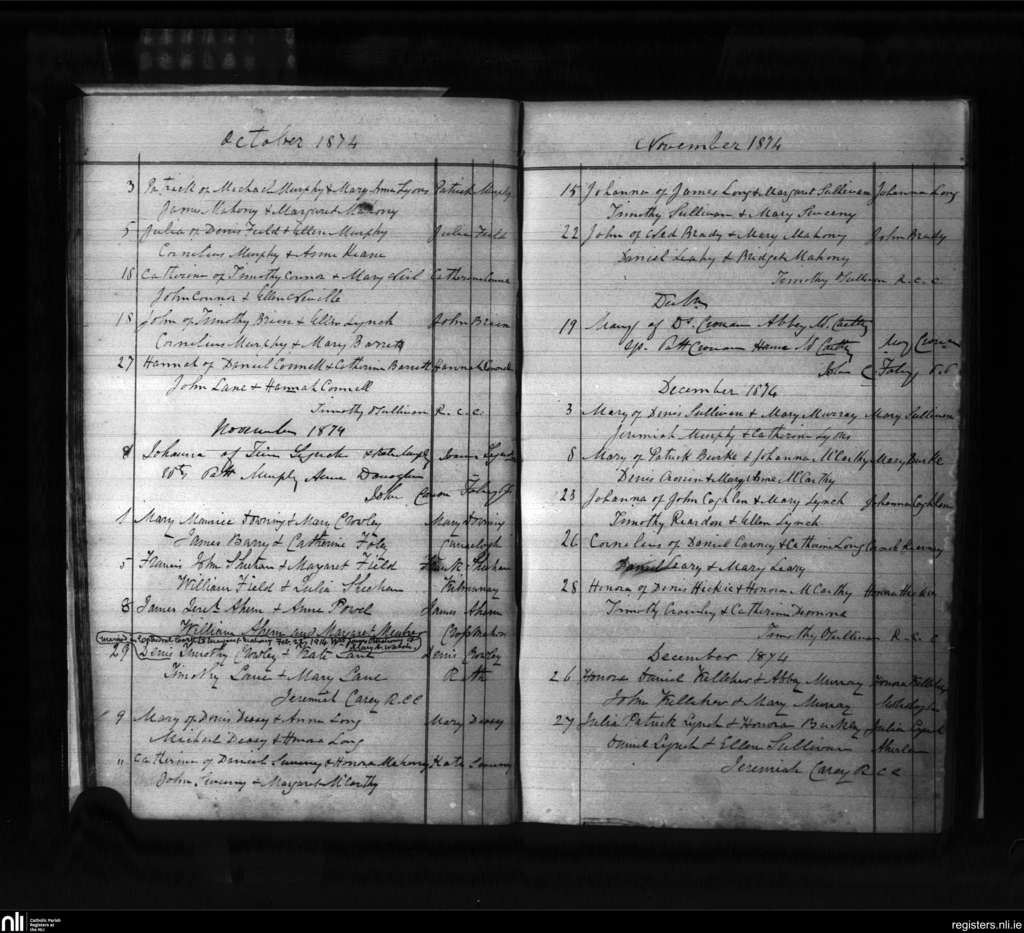 October 1874
3 Patrick of Michael Murphy & Mary Anne Lyons Patrick Murphy
James Mahony & Margaret Mahony
5 Julia of Denis Field & Ellen Murphy Julia Field
Cornelius Murphy & Anne Keane
18 Catherine of Timothy Connor & Mary Neil Catherine
John Connor & Ellen Neville
18 John of Timothy Brien & Ellen Lynch John Brien
Cornelius Murphy & Mary Barrett
27 Hannah of Daniel Connell & Catherine Barrett Hannah Connell
John Lane & Hannah Connell
Timothy O'Sullivan R.C.C.
November 1874
8 Johanna of Tim Lynch & Kate
Patt Murphy Anne Donoghue
John Foley
1 Mary Maurice Downing & Mary Crowley Mary Downing
James Barry & Catherine Foley
5 Francis John Sheehan & Margaret Field Sheehan
William Field & Julia Sheehan
8 James Ahern & Anne Power James Ahern
William Ahern and Margaret
29 Denis Timothy Crowley & Kate Lane Denis Crowley
Timothy Lane & Mary Lane
Jeremiah Carey R.C.C
9 Mary of Denis Deasy & Anne Long Mary Deasy
Michael Deasy & Honora Long
" Catherine of Daniel Sweeny & Honora Mahony Kate Sweeny
John Sweeny & Margaret McCarthy
November 1874
15 Johanna of James Long & Margaret Sullivan Johanna Long
Timothy Sullivan & Mary Sweeny
22 John of Ned Brady & Mary Mahony John Brady
Daniel Leahy & Bridget Mahony
Timothy O'Sullivan R.C.C.
19 of Cronan Abbey McCarthy
Patt Cronan McCarthy
John C Foley
December 1874
3 Mary of Denis Sullivan & Mary Murray Mary Sullivan
Jeremiah Murphy & Catherine Lyons
8 Mary of Patrick Burke & Johanna McCarthy Mary Burke
Denis Cronin & Mary Anne McCarthy
23 Johanna of John Coghlan & Mary Lynch Johanna Coghlan
Timothy Reardon & Ellen Lynch
26 Cornelius of Daniel Carney & Catherine Long
Daniel Leary & Mary Leary
28 Honora of Denis Hickie & Honora McCarthy Honora Hickie
Timothy Crowley & Catherine
Timothy O'Sullivan R.C.C
December 1874
26 Honora Daniel Kelleher & Abby Murray Honora Kelleher
John Kelleher & Mary Murray
27 Julia Patrick Lynch & Honora Buckley Julia Lynch
Daniel Lynch & Ellen Sullivan
Jeremiah Carey R.C.C
nli Catholic Parish Registers at the NLI
registers.nli.ie